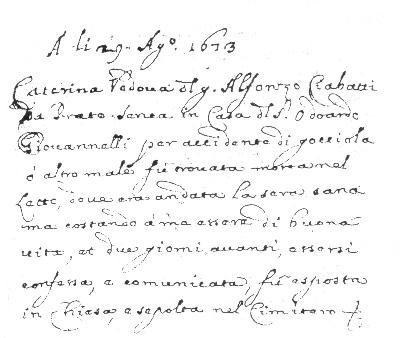 A li 29. Agº. 1673
Caterina Vedova dl q. Alfonzo Ciabatti
da Prato. Senta in Casa dl Sr. Odoardo
Giovannelli per accidente di gocciola
ò altro male fù trovata morta nel
Letto, dove era andata la sera sana
ma costando à me essere di buona
vita, et due giorni avanti, essersi
confessa, e comunicata, fù esposta
in Chiesa, e sepolta nel Cimitero